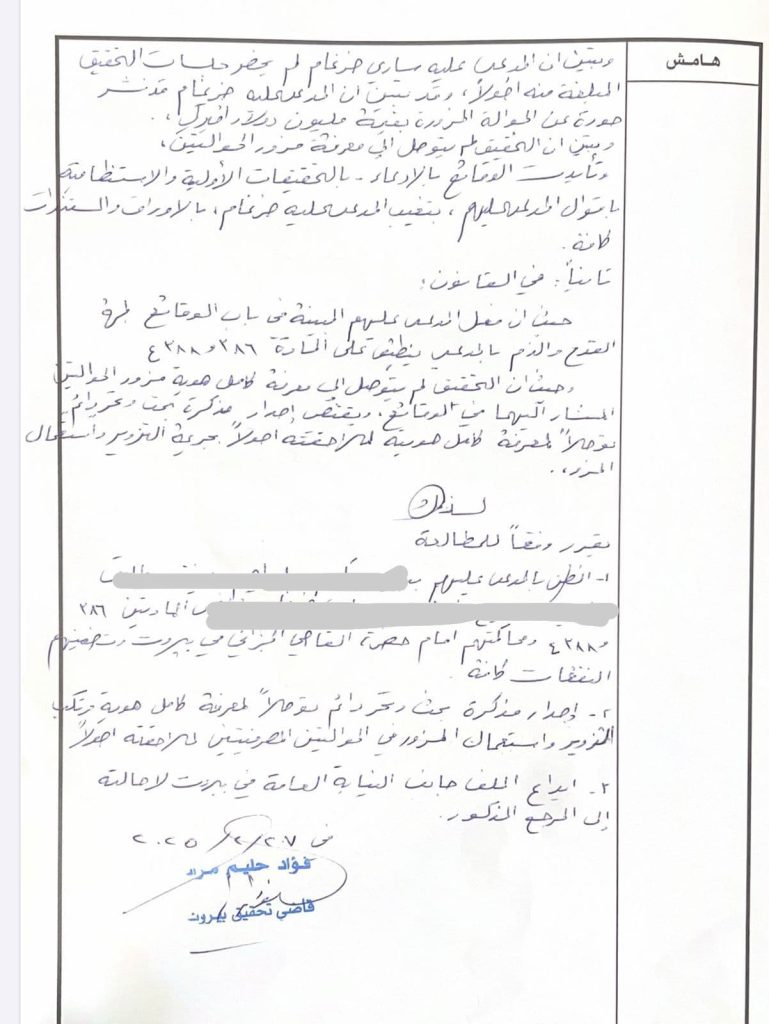 هامش
وتبين ان المدعى عليه ساري ضرغام لم يحضر جلسات التحقيق
المبلغة منه اصولاً، وقد تبين ان المدعى عليه ضرغام قد نشر
صورة عن الحوالة المزورة بقيمة مليون دولار اميركي.
وتبين ان التحقيق لم يتوصل الى معرفة مزور الحوالتين،
وتأيدت الوقائع بالادعاء، بالتحقيقات الأولية والاستنطاقية
بأقوال المدعى عليهم، بتغيب المدعى عليه ضرغام، بالاوراق والمستندات
كافة.
ثانياً: في القانون:
حيث ان فعل المدعى عليهم المبينة في باب الوقائع لجهة
القدح والذم بالمدعي ينطبق على المادة ٣٨٦ و ٣٨٨ ع
وحيث ان التحقيق لم يتوصل الى معرفة كامل هوية مزور الحوالتين
المشار اليهما في الوقائع، ويقتضي إصدار مذكرة بحث وتحر دائم
توصلاً لمعرفة كامل هويته لملاحقته اصولاً بجرمي التزوير واستعمال
المزور.
لذلك
يقرر وفقاً للمطالعة
١- الظن بالمدعى عليهم
المادتين ٣٨٦
و ٣٨٨ ع ومحاكمتهم امام حضرة القاضي الجزائي في بيروت وتضمينهم
النفقات كافة.
٢- إصدار مذكرة بحث وتحر دائم توصلاً لمعرفة كامل هوية مرتكب
التزوير واستعمال المزور في الحوالتين المصرفيتين لملاحقته اصولاً
٣- ايداع الملف جانب النيابة العامة في بيروت لاحالته
إلى المرجع المذكور.
في ٢٠٢٥/٢/٢٧
فؤاد حليم مراد
قاضي تحقيق بيروت